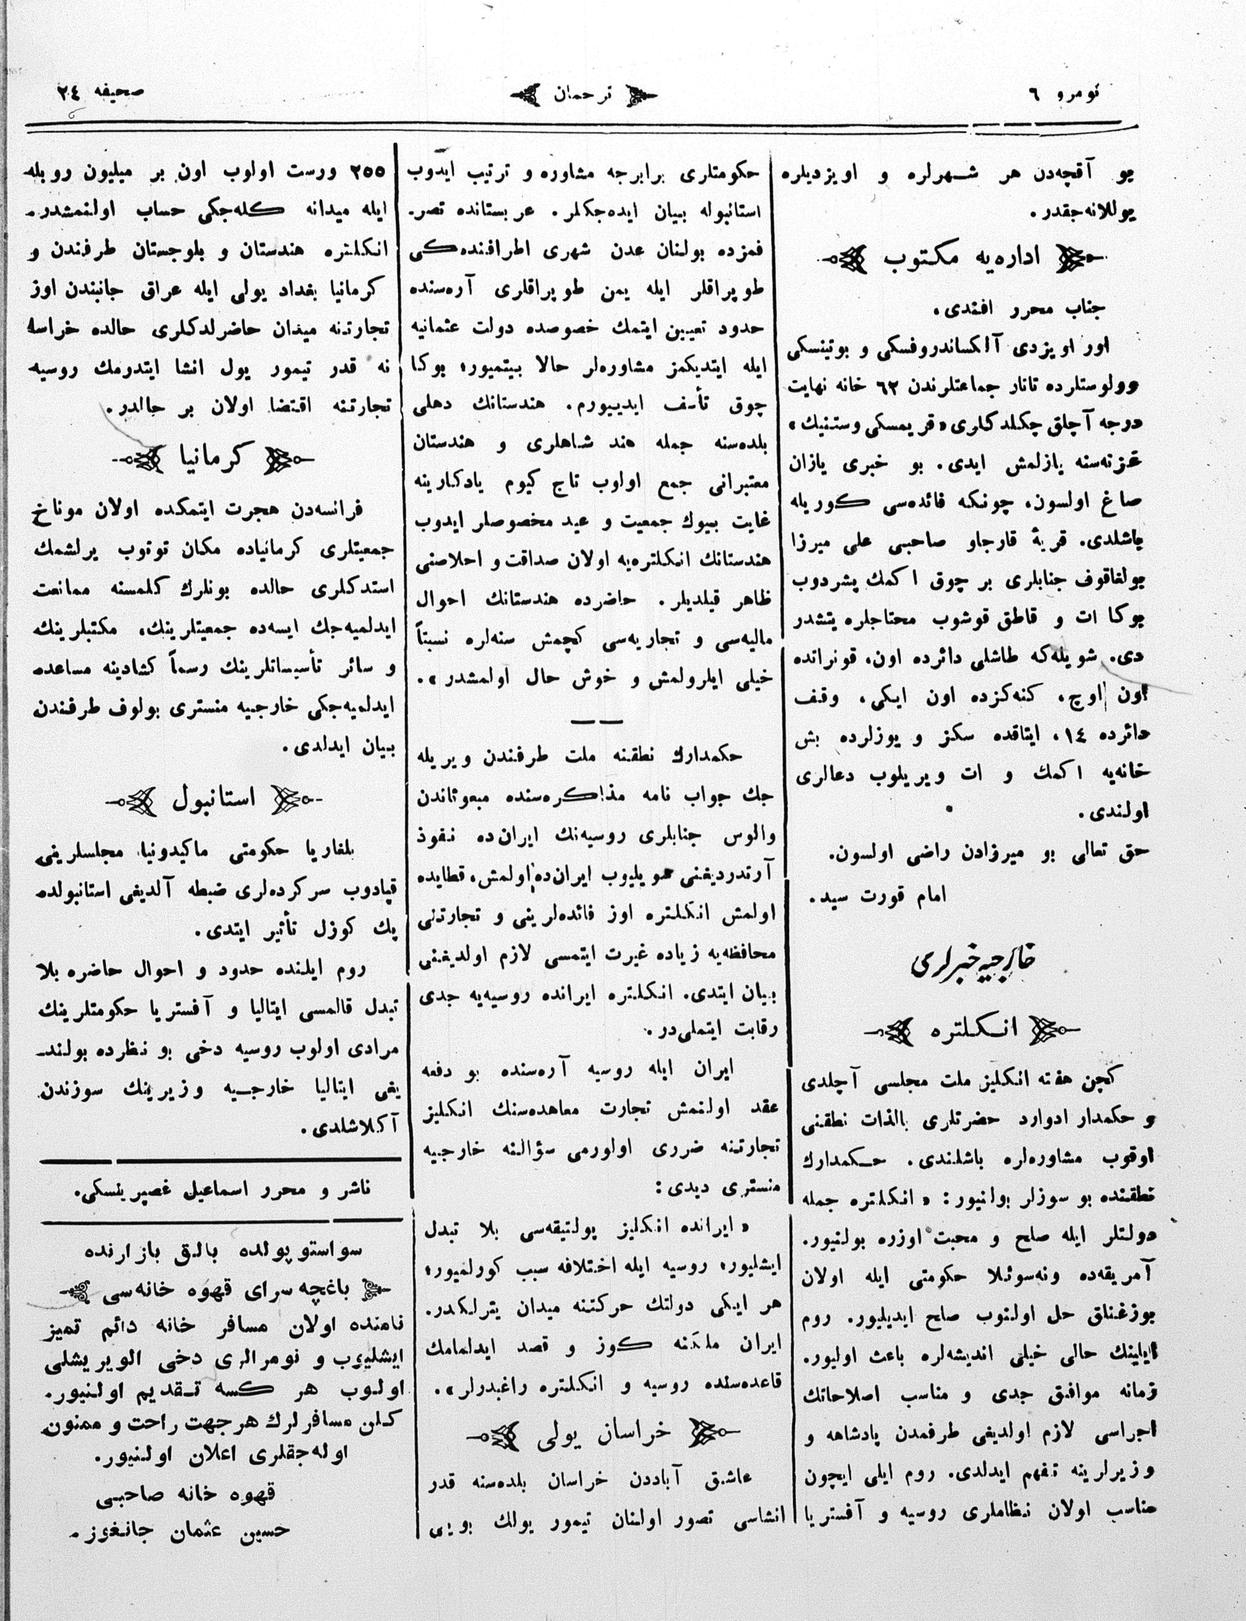 نومرو ٦
ترجمان
صحیفه ٢٤
بو آقچه‌دن هر شهرلره و اویزدیلره
یوللانه‌جقدر.
اداره‌یه مكتوب
جناب محرر افندی،
اور اویزدی آلكساندروفسكی و بوتینسكی
وولوستلرده تاتار جماعتلرندن ٦٢ خانه نهایت
درجه آچلق چكلدكلری «قریمسكی وستنیك»
غزته‌سنه یازلمش ایدی. بو خبری یازان
صاغ اولسون، چونكه فائده‌سی كوریله
باشلدی. قریهٔ قارجاو صاحبی علی میرزا
بولغاقوف جنابلری بر چوق اكمك پشردوب
بوكا ات و قاطق قوشوب محتاجلره یتشدر
دی. شویله‌كه طاشلی دائرده اون، قونرانده
اون اوچ، كنه‌كزده اون ایكی، وقف
دائرده ١٤، ایتاقده سكز و یوزلرده بش
خانه‌یه اكمك و ات ویریلوب دعالری
اولندی.
حق تعالی بو میرزادن راضی اولسون.
امام قورت سید.
خارجیه خبرلری
انكلتره
كچن هفته انكلیز ملت مجلسی آچلدی
و حكمدار ادوارد حضرتلری بالذات نطقنی
اوقوب مشاوره‌لره باشلندی. حكمدارك
نطقنده بو سوزلر بولنیور: «انكلتره جمله
دولتلر ایله صلح و محبت اوزره بولنیور.
آمریقه‌ده ونه‌سوئلا حكومتی ایله اولان
بوزغنلق حل اولنوب صلح ایدیلیور. روم
ایلینك حالی خیلی اندیشه‌لره باعث اولیور.
زمانه موافق جدی و مناسب اصلاحاتك
اجراسی لازم اولدیغی طرفمدن پادشاهه و
وزیرلرینه تفهم ایدلدی. روم ایلی ایچون
مناسب اولان نظاملری روسیه و آفستریا
حكومتلری برابرجه مشاوره و ترتیب ایدوب
استانبوله بیان ایده‌جكلر. عربستانده تصر.
فمزده بولنان عدن شهری اطرافنده‌كی
طوپراقلر ایله یمن طوپراقلری آره‌سنده
حدود تعیین ایتمك خصوصده دولت عثمانیه
ایله ایتدیكمز مشاوره‌لر حالا بیتمیور؛ بوكا
چوق تأسف ایدییورم. هندستانك دهلی
بلده‌سنه جمله هند شاهلری و هندستان
معتبرانی جمع اولوب تاج كیوم یادكارینه
غایت بیوك جمعیت و عید مخصوصلر ایدوب
هندستانك انكلتره‌یه اولان صداقت و اخلاصنی
ظاهر قیلدیلر. حاضرده هندستانك احوال
مالیه‌سی و تجاریه‌سی كچمش سنه‌لره نسبتاً
خیلی ایلرولمش و خوش حال اولمشدر».
حكمدارك نطقنه ملت طرفندن ویریله
جك جواب نامه مذاكره‌سنده مبعوثاندن
والوس جنابلری روسیه‌نك ایران‌ده نفوذ
آرتدردیغنی سویلیوب ایران‌ده اولمش، قطایده
اولمش انكلتره اوز فائده‌لرینی و تجارتنی
محافظه‌یه زیاده غیرت ایتمسی لازم اولدیغنی
بیان ایتدی. انكلتره ایرانده روسیه‌یه جدی
رقابت ایتملی‌در.
ایران ایله روسیه آره‌سنده بو دفعه
عقد اولنمش تجارت معاهده‌سنك انكلیز
تجارتنه ضرری اولورمی سؤالنه خارجیه
منستری دیدی:
«ایرانده انكلیز پولتیقه‌سی بلا تبدل
ایشلیور؛ روسیه ایله اختلافه سبب كورلمیور؛
هر ایكی دولتك حركتنه میدان یترلكدر.
ایران ملكنه كوز و قصد ایدلمامك
قاعده‌سنده روسیه و انكلتره راغبدرلر».
خراسان یولی
عاشق آباددن خراسان بلده‌سنه قدر
انشاسی تصور اولنان تیمور یولك بویی
٢٥٥ ورست اولوب اون بر میلیون روبله
ایله میدانه كله‌جكی حساب اولنمشدر.
انكلتره هندستان و بلوجستان طرفندن و
كرمانیا بغداد یولی ایله عراق جانبندن اوز
تجارتنه میدان حاضرلدكلری حالده خراسا
نه قدر تیمور یول انشا ایتدرمك روسیه
تجارتنه اقتضا اولان بر حالدر.
كرمانیا
فرانسه‌دن هجرت ایتمكده اولان موناخ
جمعیتلری كرمانیاده مكان توتوب یرلشمك
استدكلری حالده بونلرك كلمسنه ممانعت
ایدلمیه‌جك ایسه‌ده جمعیتلرینك، مكتبلرینك
و سائر تأسیساتلرینك رسماً كشادینه مساعده
ایدلمیه‌جكی خارجیه منستری بولوف طرفندن
بیان ایدلدی.
استانبول
بلغاریا حكومتی ماكیدونیا مجلسلرینی
قپادوب سركرده‌لری ضبطه آلدیغی استانبولده
پك كوزل تأثیر ایتدی.
روم ایلنده حدود و احوال حاضره بلا
تبدل قالمسی ایتالیا و آفستریا حكومتلرینك
مرادی اولوب روسیه دخی بو نظرده بولند
یغی ایتالیا خارجیه وزیرینك سوزندن
آكلاشلدی.
ناشر و محرر اسماعیل غصپرینسكی.
سواستوپولده بالق بازارنده
باغچه سرای قهوه خانه‌سی
نامنده اولان مسافر خانه دائم تمیز
ایشلیوب و نومرالری دخی الویریشلی
اولوب هر كسه تقدیم اولنیور.
كلن مسافرلرك هر جهت راحت و ممنون
اوله‌جقلری اعلان اولنیور.
قهوه خانه صاحبی
حسین عثمان جانغوز.